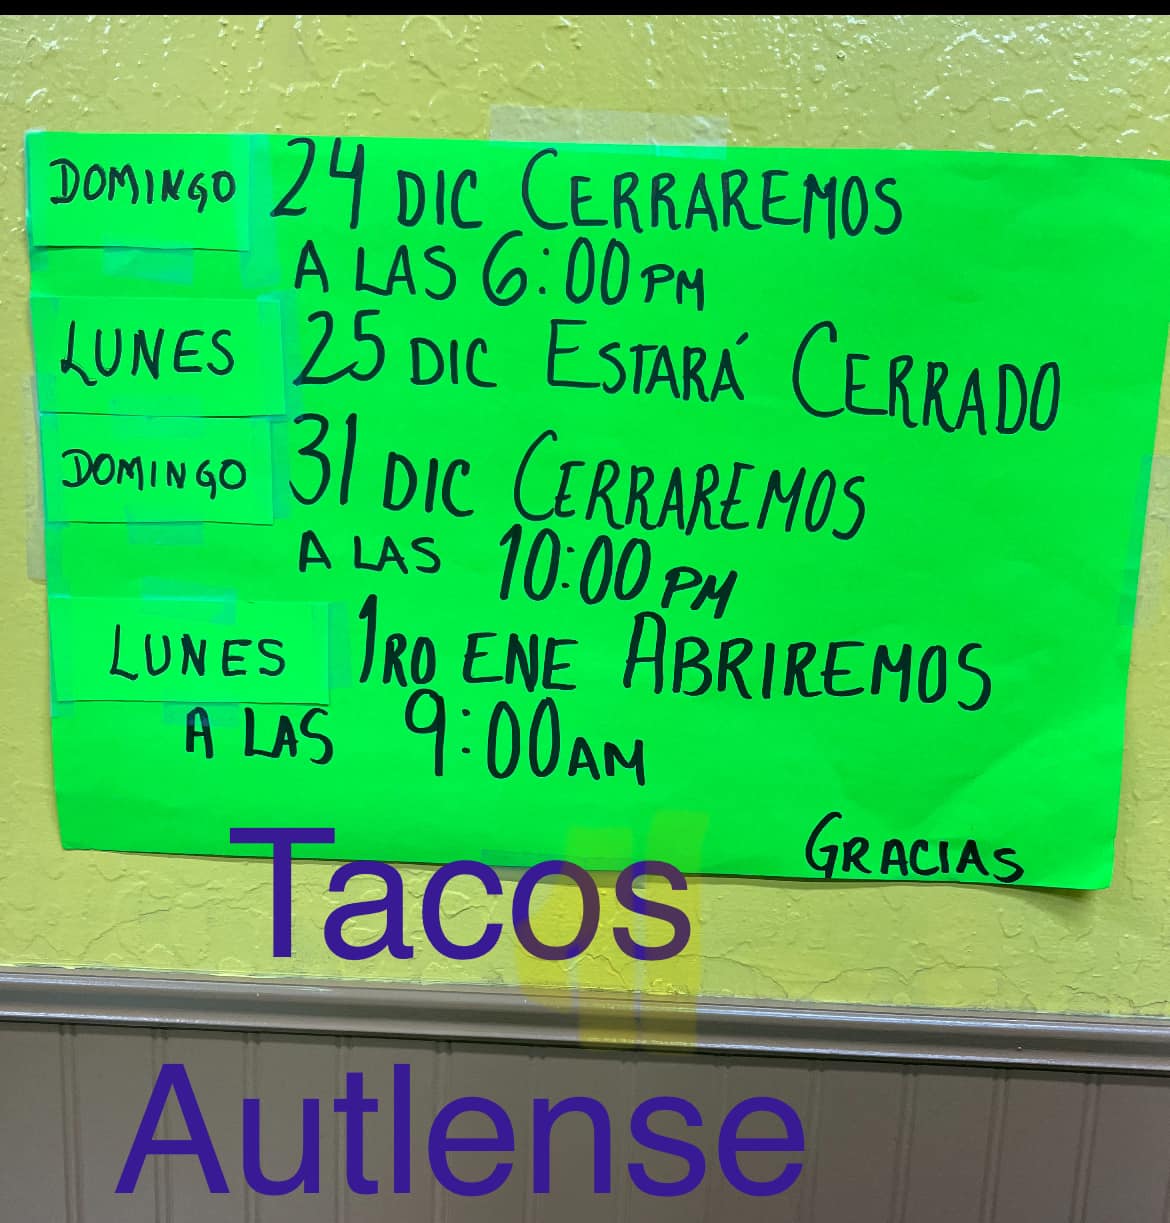 DOMINGO 24 DIC CERRAREMOS
A LAS 6:00 PM
LUNES 25 DIC ESTARÁ CERRADO
DOMINGO 31 DIC CERRAREMOS
A LAS 10:00 PM
LUNES 1RO ENE ABRIREMOS
A LAS 9:00 AM
GRACIAS
Tacos
Autlense